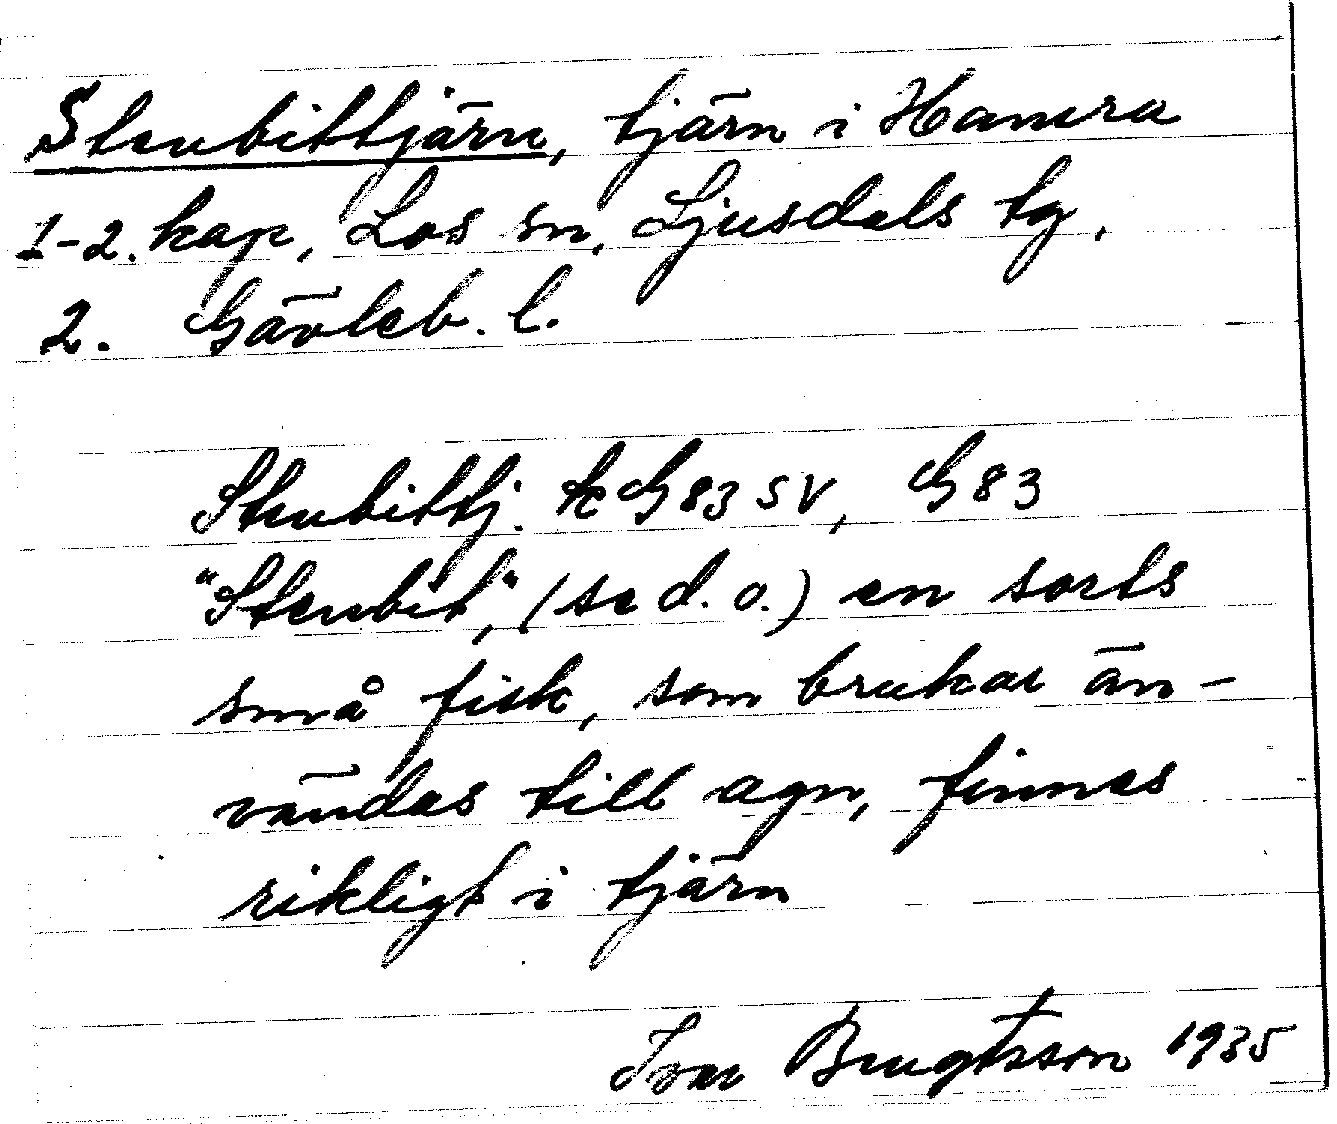 Stenbittjärn, tjärn i Hamra
1-2. kap, Los sn, Ljusdals tg,
2. Gävleb. l.
Stenbittj. k G83 SV, G83
"Stenbit", (se d. o.) en sorts
små fisk, som brukar än-
vändas till agn, finnes
rikligt i tjärn
Ivar Bengtsson 1935